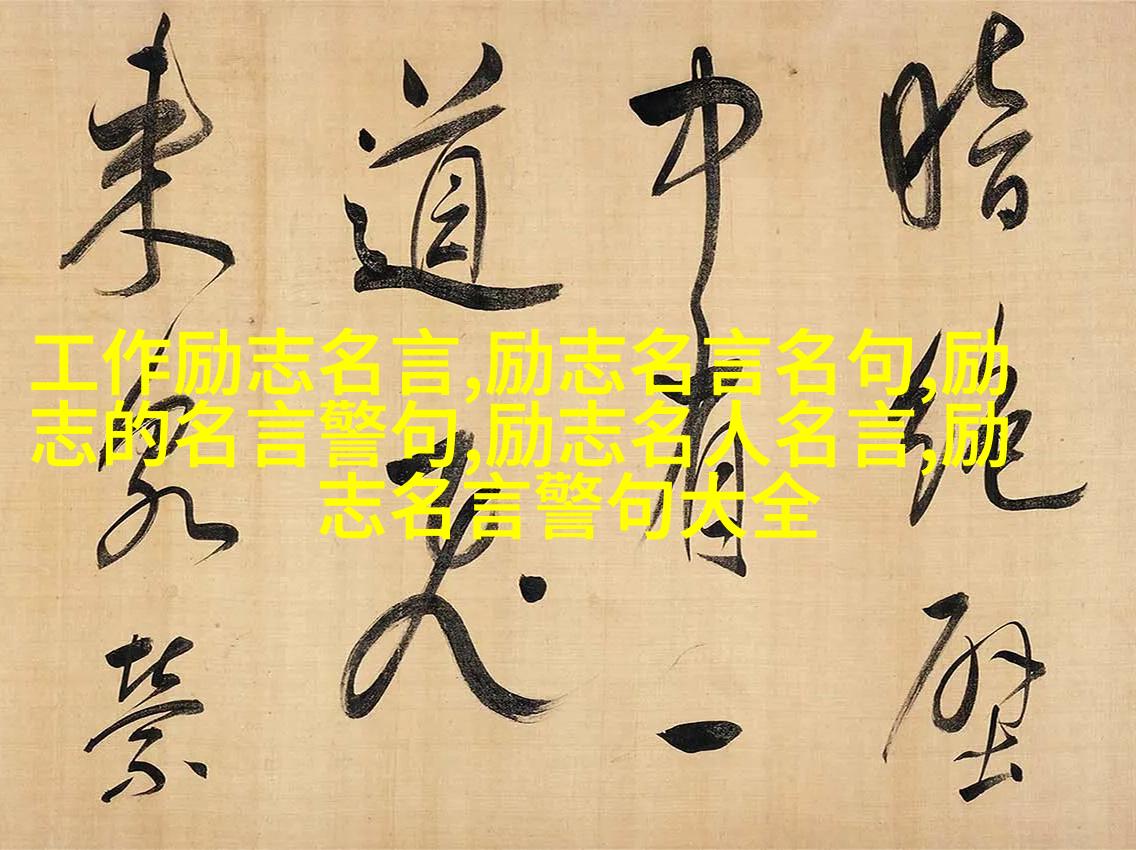 暗絶
中有一
道飛
来泉縈
工作励志名言,励志名言名句,励
志的名言警句,励志名人名言,励
志名言警句大全